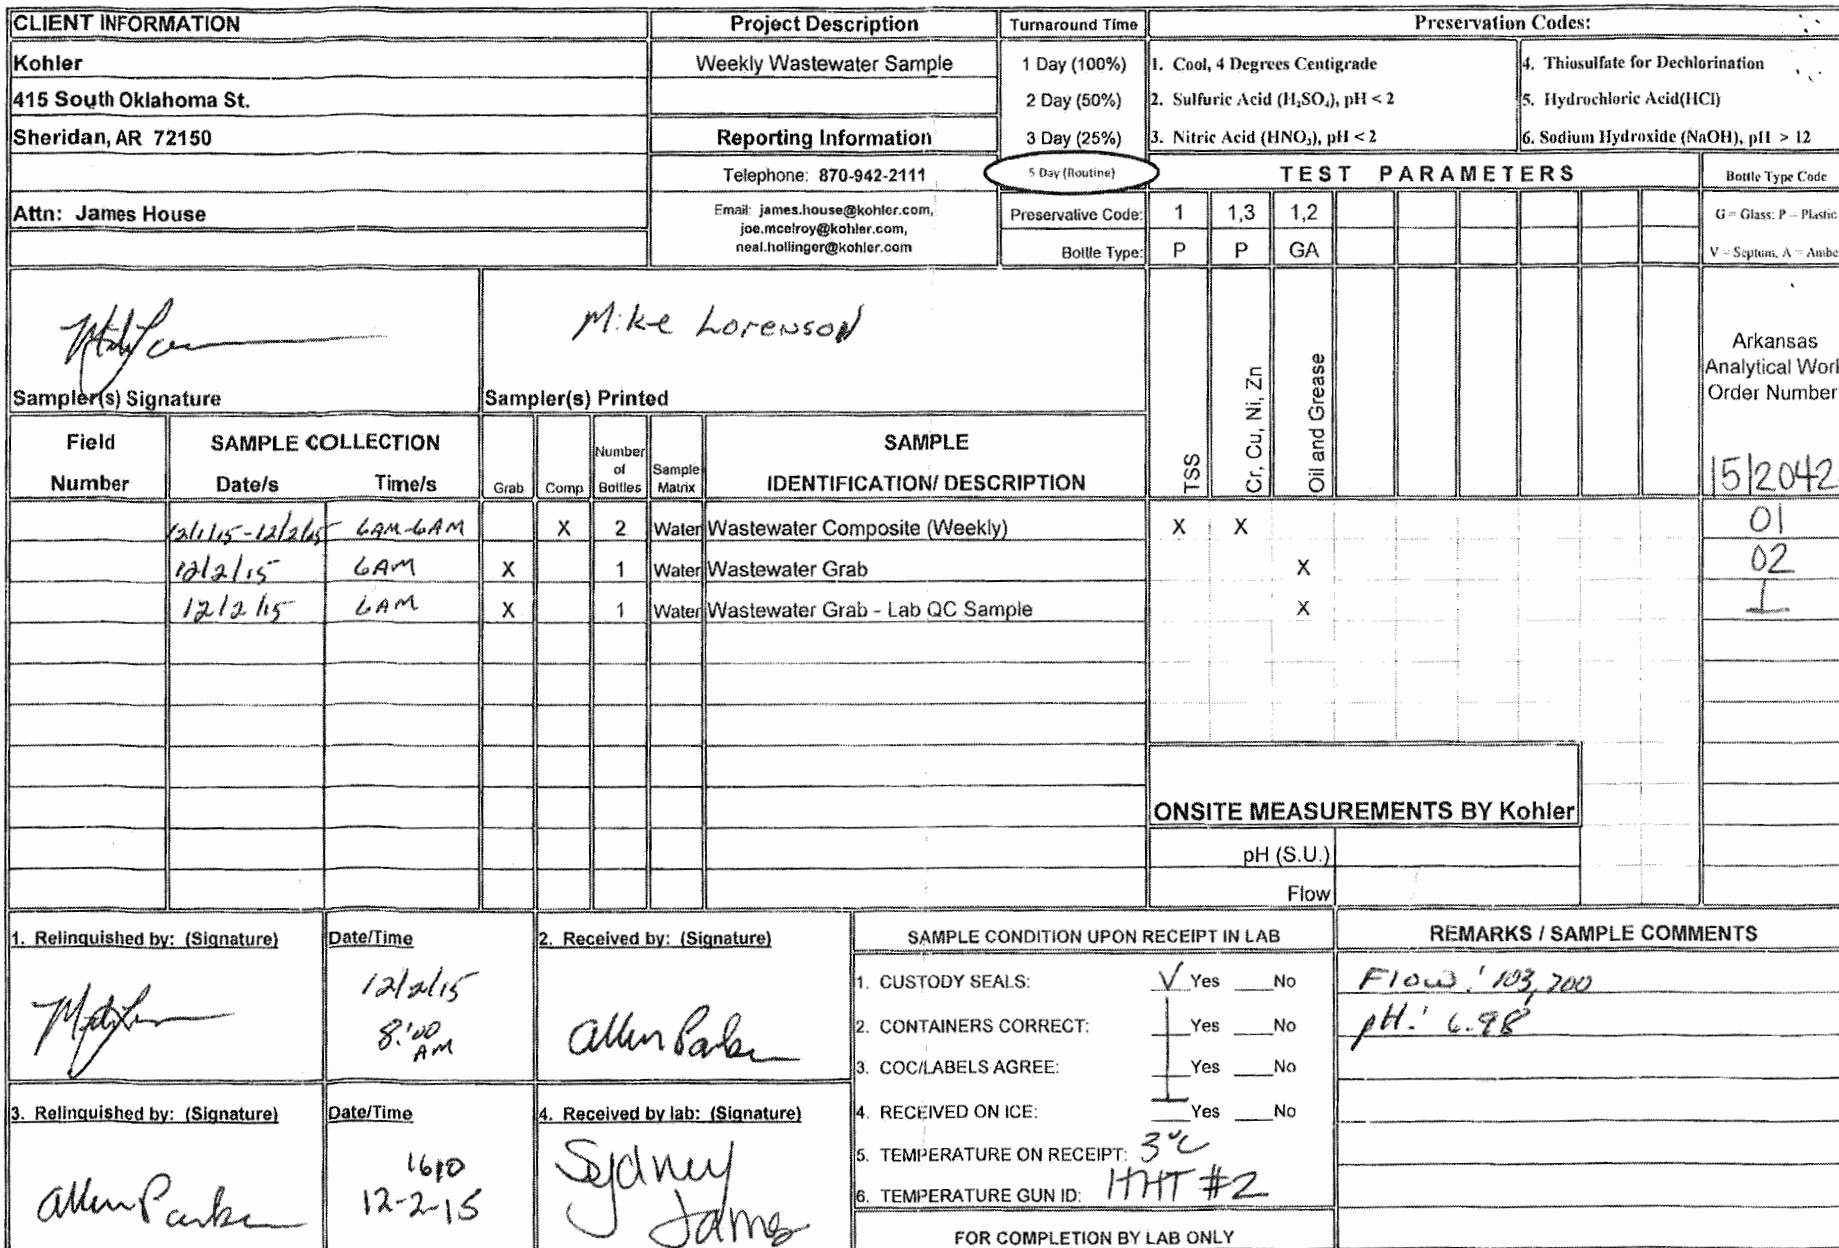 CLIENT INFORMATION
Kohler
415 South Oklahoma St.
Sheridan, AR 72150
Attn: James House
Project Description
Weekly Wastewater Sample
Reporting Information
Telephone: 870-942-2111
Email: james.house@kohler.com,
joe.mcelroy@kohler.com,
neal.hollinger@kohler.com
Turnaround Time
1 Day (100%)
2 Day (50%)
3 Day (25%)
5 Day (Routine)
Preservation Codes:
1. Cool, 4 Degrees Centigrade
2. Sulfuric Acid (H₂SO₄), pH < 2
3. Nitric Acid (HNO₃), pH < 2
4. Thiosulfate for Dechlorination
5. Hydrochloric Acid(HCl)
6. Sodium Hydroxide (NaOH), pH > 12
TEST PARAMETERS
Bottle Type Code
Preservative Code: 1 1,3 1,2
G = Glass: P = Plastic
Bottle Type: P P GA
V = Septum, A = Ambe
Mike Lorenson
Sampler(s) Signature
Sampler(s) Printed
TSS
Cr, Cu, Ni, Zn
Oil and Grease
Arkansas
Analytical Work
Order Number
1512042
Field
Number
SAMPLE COLLECTION
Date/s Time/s
Grab
Comp
Number
of
Bottles
Sample
Matrix
SAMPLE
IDENTIFICATION/ DESCRIPTION
12/1/15-12/2/15 6AM-6AM X 2 Water Wastewater Composite (Weekly) X X 01
12/2/15 6AM X 1 Water Wastewater Grab X 02
12/2/15 6AM X 1 Water Wastewater Grab - Lab QC Sample X
ONSITE MEASUREMENTS BY Kohler
pH (S.U.)
Flow
1. Relinquished by: (Signature)
Date/Time
12/2/15
8:00
AM
2. Received by: (Signature)
Allen Parker
3. Relinquished by: (Signature)
Allen Parker
Date/Time
1610
12-2-15
4. Received by lab: (Signature)
Sydney
James
SAMPLE CONDITION UPON RECEIPT IN LAB
1. CUSTODY SEALS: √ Yes ___No
2. CONTAINERS CORRECT: ___Yes ___No
3. COC/LABELS AGREE: ___Yes ___No
4. RECEIVED ON ICE: ___Yes ___No
5. TEMPERATURE ON RECEIPT: 3°C
6. TEMPERATURE GUN ID: HHT #2
FOR COMPLETION BY LAB ONLY
REMARKS / SAMPLE COMMENTS
Flow: 103,700
pH: 6.98